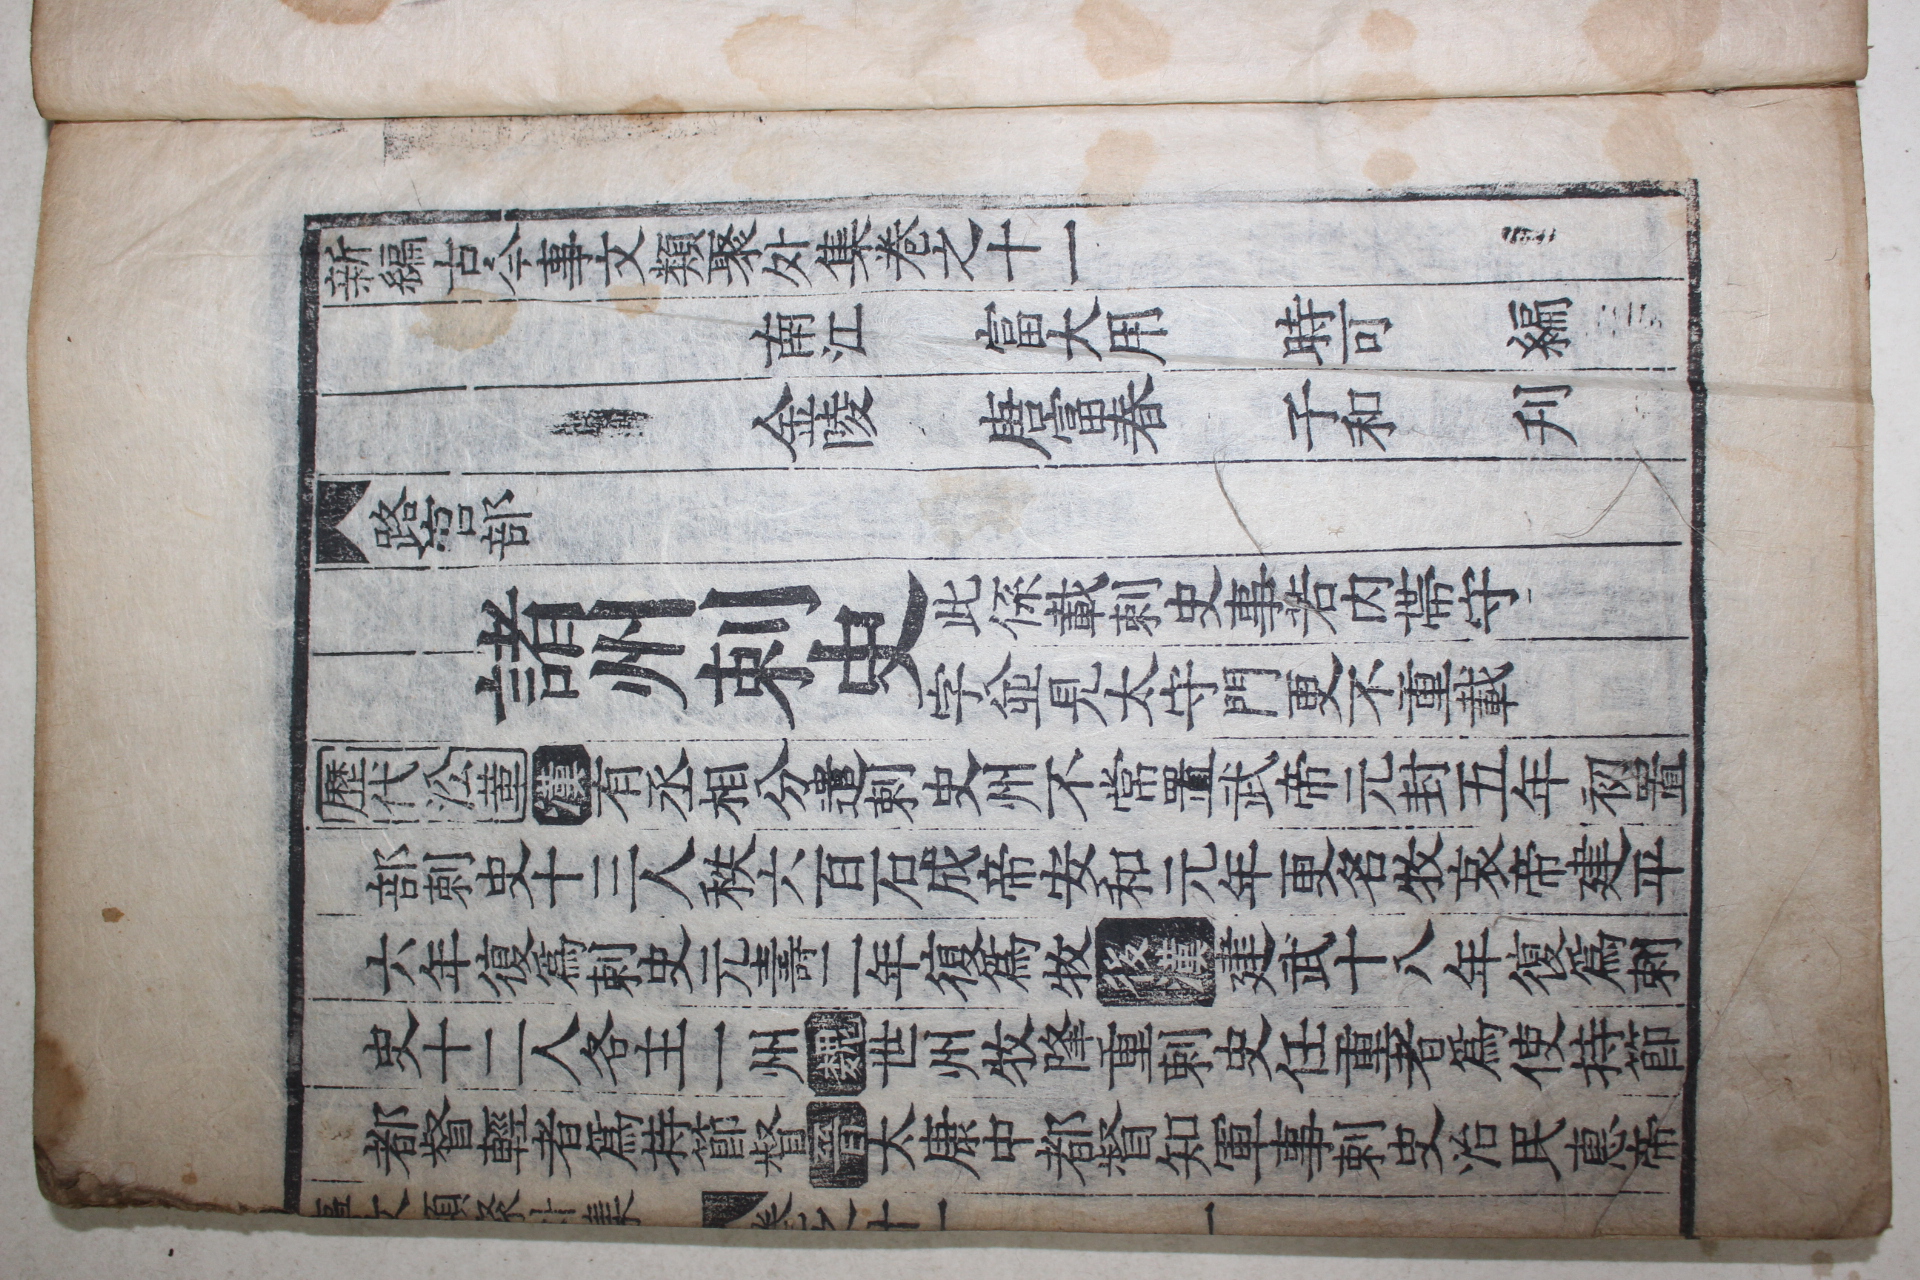 新編古今事文類聚外集卷之十一
南江 富大用 時可 編
金陵 唐富春 子和 刋
路官部
諸州刺史
此係載刺史事若内帶守
字並見太守門更不重載
歷代沿革 漢 有丞相分遣刺史州不常置武帝元封五年初置
部刺史十三人秩六百石成帝安和元年更名牧哀帝建平
六年復爲刺史元壽二年復爲牧 後漢 建武十八年復爲刺
史十二人各主一州 魏 世州牧隆重刺史任重者爲使持節
都督輕者爲持節督 晉 太康中都督知軍事刺史治民惠帝
事文類聚外集 卷之十一 一